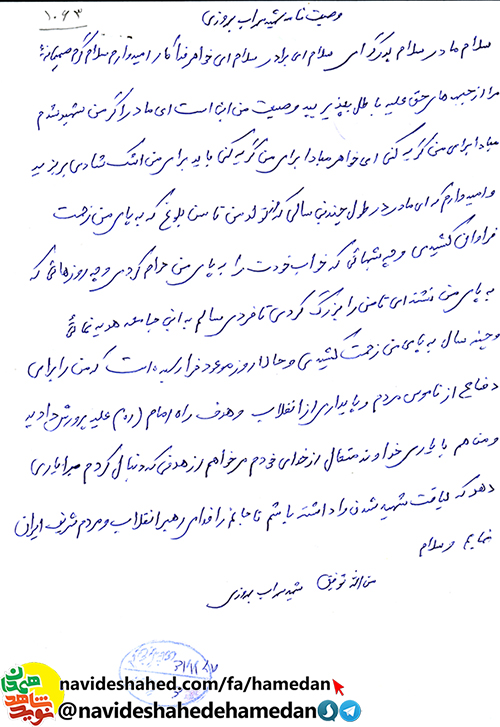 ۱۰۶۳
وصیت نامه شهید سهراب بروزی
سلام مادر سلام پدر گرامی سلام ای برادر سلام ای خواهر فداکار امیدوارم سلام گرم صمیمانهٔ
مرا از جبهه های حق علیه باطل بپذیرید وصیت من این است ای مادر اگر من شهید شدم
مبادا برای من گریه کنی ای خواهر مبادا برای من گریه کنی باید برای من اشک شادی بریزید
و امیدوارم که ای مادر در طول چندین سالی که از تولد من تا سن بلوغ که به پای من زحمت
فراوان کشیدی و چه شبهائی که خواب خودت را به پای من حرام کردی و چه روزهائی که
به پای من نشسته ای تا من را بزرگ کردی تا فردی سالم به این جامعه هدیه نمائی
و چند سال به پای من زحمت کشیدی و حالا روز موعود فرا رسیده است که من را برای
دفاع از ناموس مردم و پایداری از انقلاب و هدف راه امام (ره) علیه پرورش دادید
و من هم با یاری خداوند متعال از خدای خودم می خواهم از هدفی که دنبال کردم مرا یاری
دهد که لیاقت شهید شدن را داشته باشم تا جانم را فدای رهبر انقلاب و مردم شریف ایران
نمایم و سلام
من الله توفیق شهید سهراب بروزی
navideshahed.com/fa/hamedan
@navideshahedehamedan
نوید شاهد
همدان